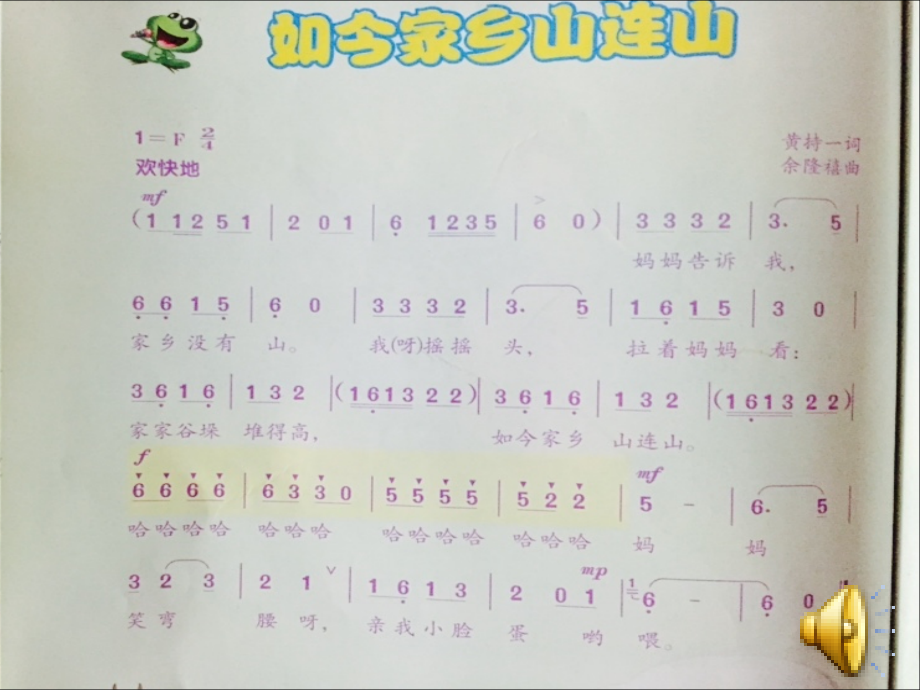 如今家乡山连山
1=F 2/4
黄持一词
欢快地
余隆禧曲
mf
(1 1 2 5 1 | 2 0 1 | 6 1 2 3 5 | 6 0) | 3 3 3 2 | 3. 5 |
妈妈告诉 我,
6 6 1 5 | 6 0 | 3 3 3 2 | 3. 5 | 1 6 1 5 | 3 0 |
家乡没有 山。 我(呀)摇摇 头, 拉着妈妈 看:
3 6 1 6 | 1 3 2 | (1 6 1 3 2 2) | 3 6 1 6 | 1 3 2 | (1 6 1 3 2 2) |
家家谷垛 堆得高, 如今家乡 山连山。
f mf
6 6 6 6 | 6 3 3 0 | 5 5 5 5 | 5 2 2 | 5 - | 6. 5 |
哈哈哈哈 哈哈哈 哈哈哈哈 哈哈哈 妈 妈
mp
3 2 3 | 2 1 | 1 6 1 3 | 2 0 1 | 6 - | 6 0
笑弯 腰呀, 亲我小脸 蛋 哟 喂。